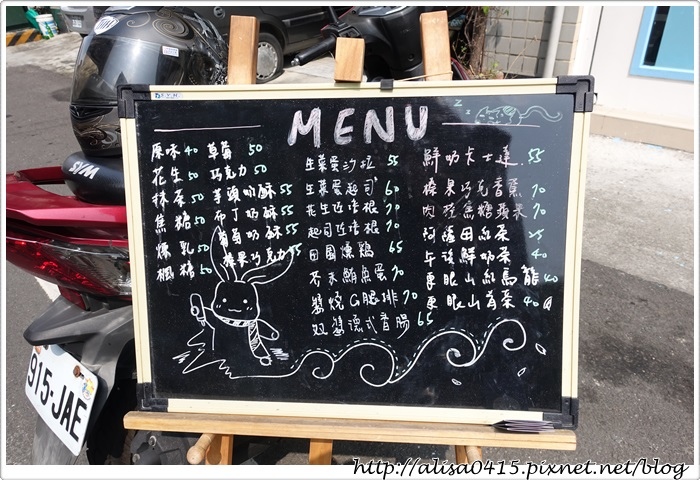 MENU
z z z
原味 40
花生 50
抹茶 50
焦糖 50
煉乳 50
楓糖 50
草莓 50
巧克力 50
芋頭奶酥 55
布丁奶酥 55
葡萄奶酥 55
榛果巧克力 55
生菜蛋沙拉 55
生菜蛋起司 60
花生培根 70
起司培根 70
田園燻雞 65
芥末鮪魚蛋 70
醬燒G腿排 70
雙醬德式香腸 65
鮮奶卡士達 55
榛果巧克香蕉 70
肉桂焦糖蘋果 70
阿薩田紅茶 25
午後鮮奶茶 40
東眼山紅烏龍 40
東眼山青茶 40
SYM
915-JAE
http://alisa0415.pixnet.net/blog